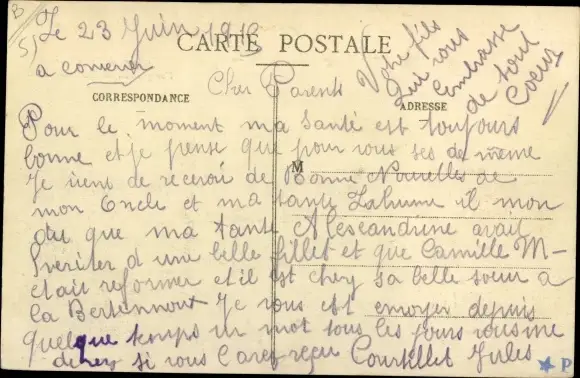 B
5)
Le 23 Juin 1919
a conserver
CARTE POSTALE
Votre fils
qui vous
embrasse
de tout
Coeur
Cher Parents
CORRESPONDANCE
ADRESSE
M
Pour le moment ma santé est toujours
bonne et je pense que pour vous ses de même
Je vient de recevoir de Bonne Nouvelles de
mon Oncle et ma tante Lahume il mon
du que ma tante Alescandrine avait
heriter d une belle fillet et que Camille M-
etait reformer et il est chez sa belle soeur a
la Je vous est envoyer depuis
quelque temps un mot tous les jours vous me
direz si vous l'avez reçu Courtillet Jules
P